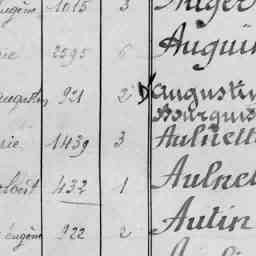 ugène 1015 3 Auger
ie 2595 6 Augui
augustin 921 2 D'augustin
Bourquis
rie 1439 3 Aulnette
olbert 432 1 Aulne
eugène 922 2 Autin